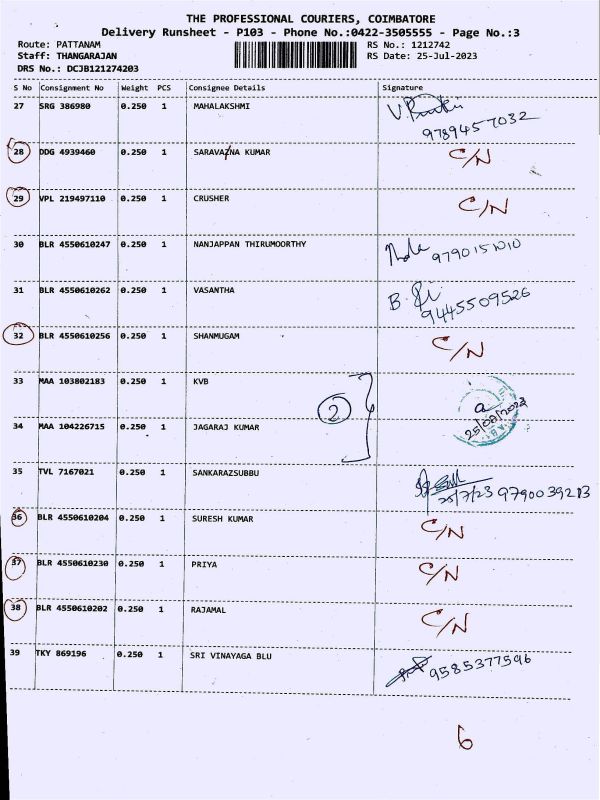 THE PROFESSIONAL COURIERS, COIMBATORE
Delivery Runsheet - P103 - Phone No.:0422-3505555 - Page No.:3
Route: PATTANAM RS No.: 1212742
Staff: THANGARAJAN RS Date: 25-Jul-2023
DRS No.: DCJB121274203
S No Consignment No Weight PCS Consignee Details Signature
27 SRG 386980 0.250 1 MAHALAKSHMI
9789457032
28 DDG 4939460 0.250 1 SARAVAZNA KUMAR C/N
29 VPL 219497110 0.250 1 CRUSHER C/N
30 BLR 4550610247 0.250 1 NANJAPPAN THIRUMOORTHY
31 BLR 4550610262 0.250 1 VASANTHA
9445509526
32 BLR 4550610256 0.250 1 SHANMUGAM C/N
33 MAA 103802183 0.250 1 KVB
2
34 MAA 104226715 0.250 1 JAGARAJ KUMAR
35 TVL 7167021 0.250 1 SANKARAZSUBBU
25/7/23 9790039213
36 BLR 4550610204 0.250 1 SURESH KUMAR C/N
37 BLR 4550610230 0.250 1 PRIYA C/N
38 BLR 4550610202 0.250 1 RAJAMAL C/N
39 TKY 869196 0.250 1 SRI VINAYAGA BLU 9585377596
6